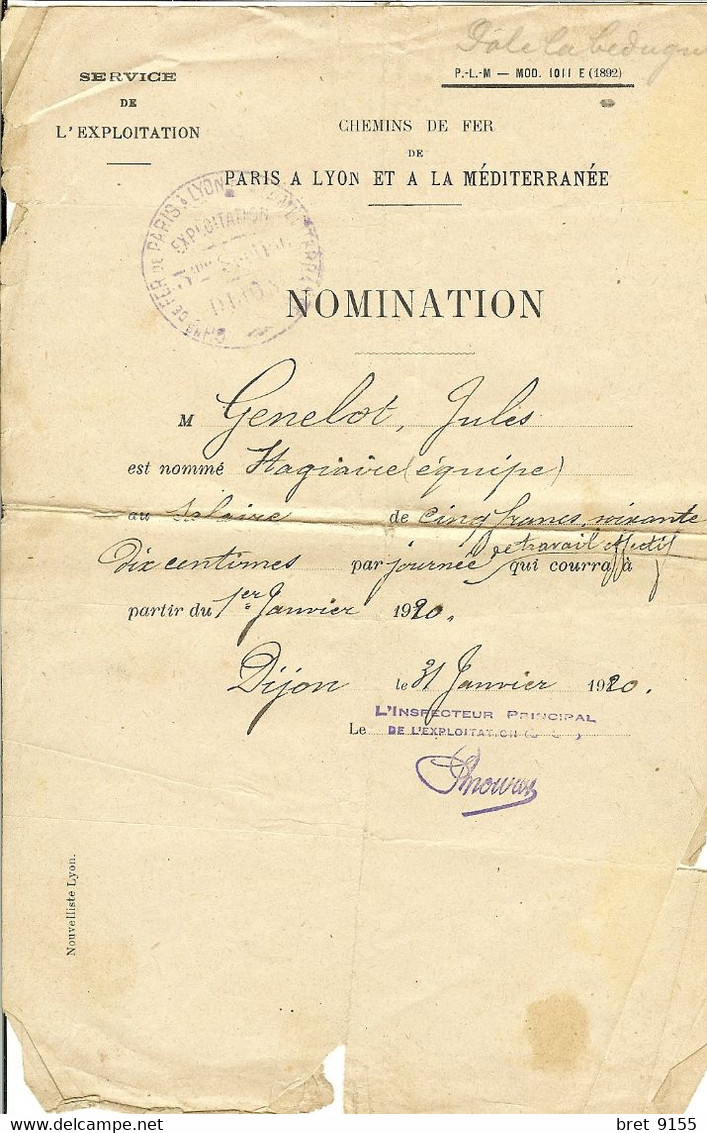 Dôle la bedugue
P.-L.-M — MOD. 1011 E (1892)
SERVICE
DE
L'EXPLOITATION
CHEMINS DE FER
DE
PARIS A LYON ET A LA MÉDITERRANÉE
CHINS DE FER DE PARIS A LYON
EXPLOITATION
DIJON
NOMINATION
M Genelot, Jules
est nommé Stagiaire (équipe)
au salaire de cinq francs, soixante
de travail effectif
dix centimes par journée qui courra à
partir du 1er Janvier 1920.
Dijon le 31 Janvier 1920.
L'INSPECTEUR PRINCIPAL
Le DE L'EXPLOITATION
Nouvelliste Lyon.
bret 9155